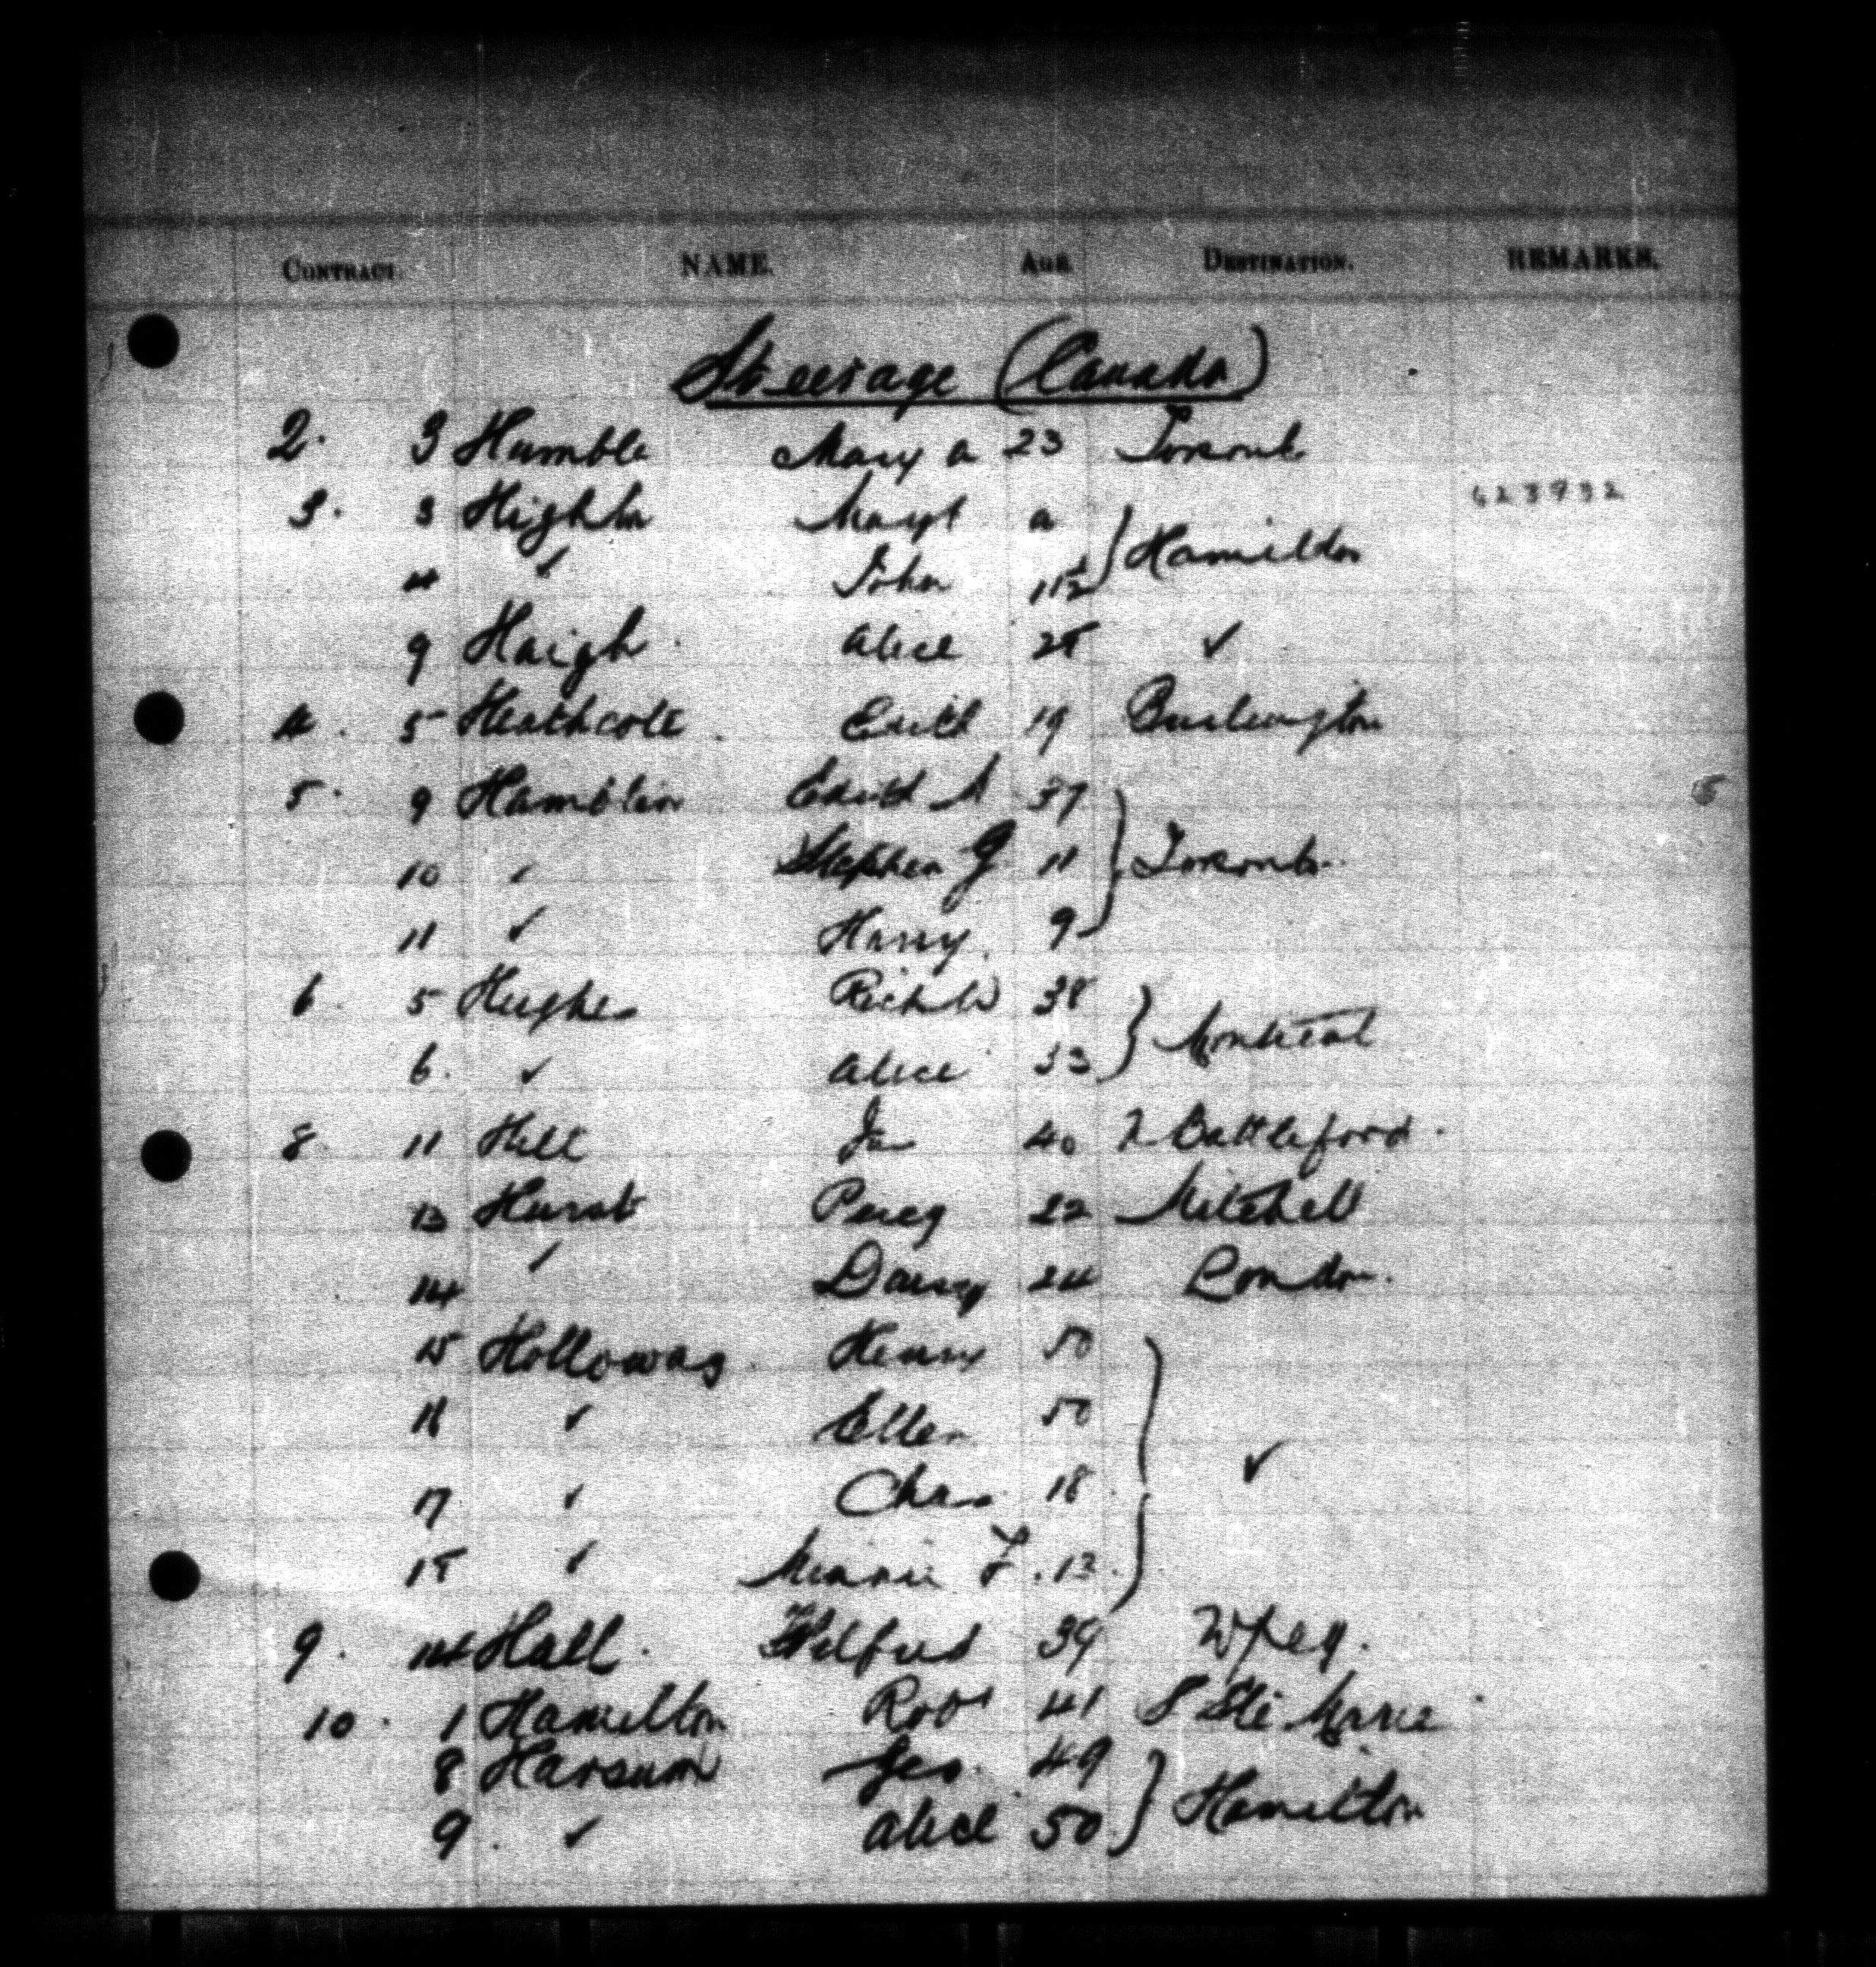 CONTRACT NAME. AGE. DESTINATION. REMARKS.
Steerage (Canada)
2. 3 Humble Mary A 23 Toronto
3. 3 Mayt a Hamilton 623732
4 ✓ John 11½
9 Haigh. Alice 28 ✓
4. 5 Heathcote. Edith 19 Burlington
5. 9 Hamblin Edith A 37 Toronto.
10 ✓ Stephen G 11
11 ✓ Harry. 9
6. 5 Hughes Rich W 38 Montreal
6. ✓ Alice 33
8. 11 Hill Jn 40 N Battleford.
13 Hurst Percy 22 Mitchell
14 ✓ Daisy 24 London.
15 Holloway. Henry 50 ✓
16 ✓ Ellen 50
17 ✓ Chas 18
18 ✓ Minnie F. 13.
9. 14 Hall. Wilfred 39 Wpeg.
10. 1 Hamilton Robt 41 S Ste Marie
8 Harsum Geo. 49 Hamilton
9. ✓ Alice 50